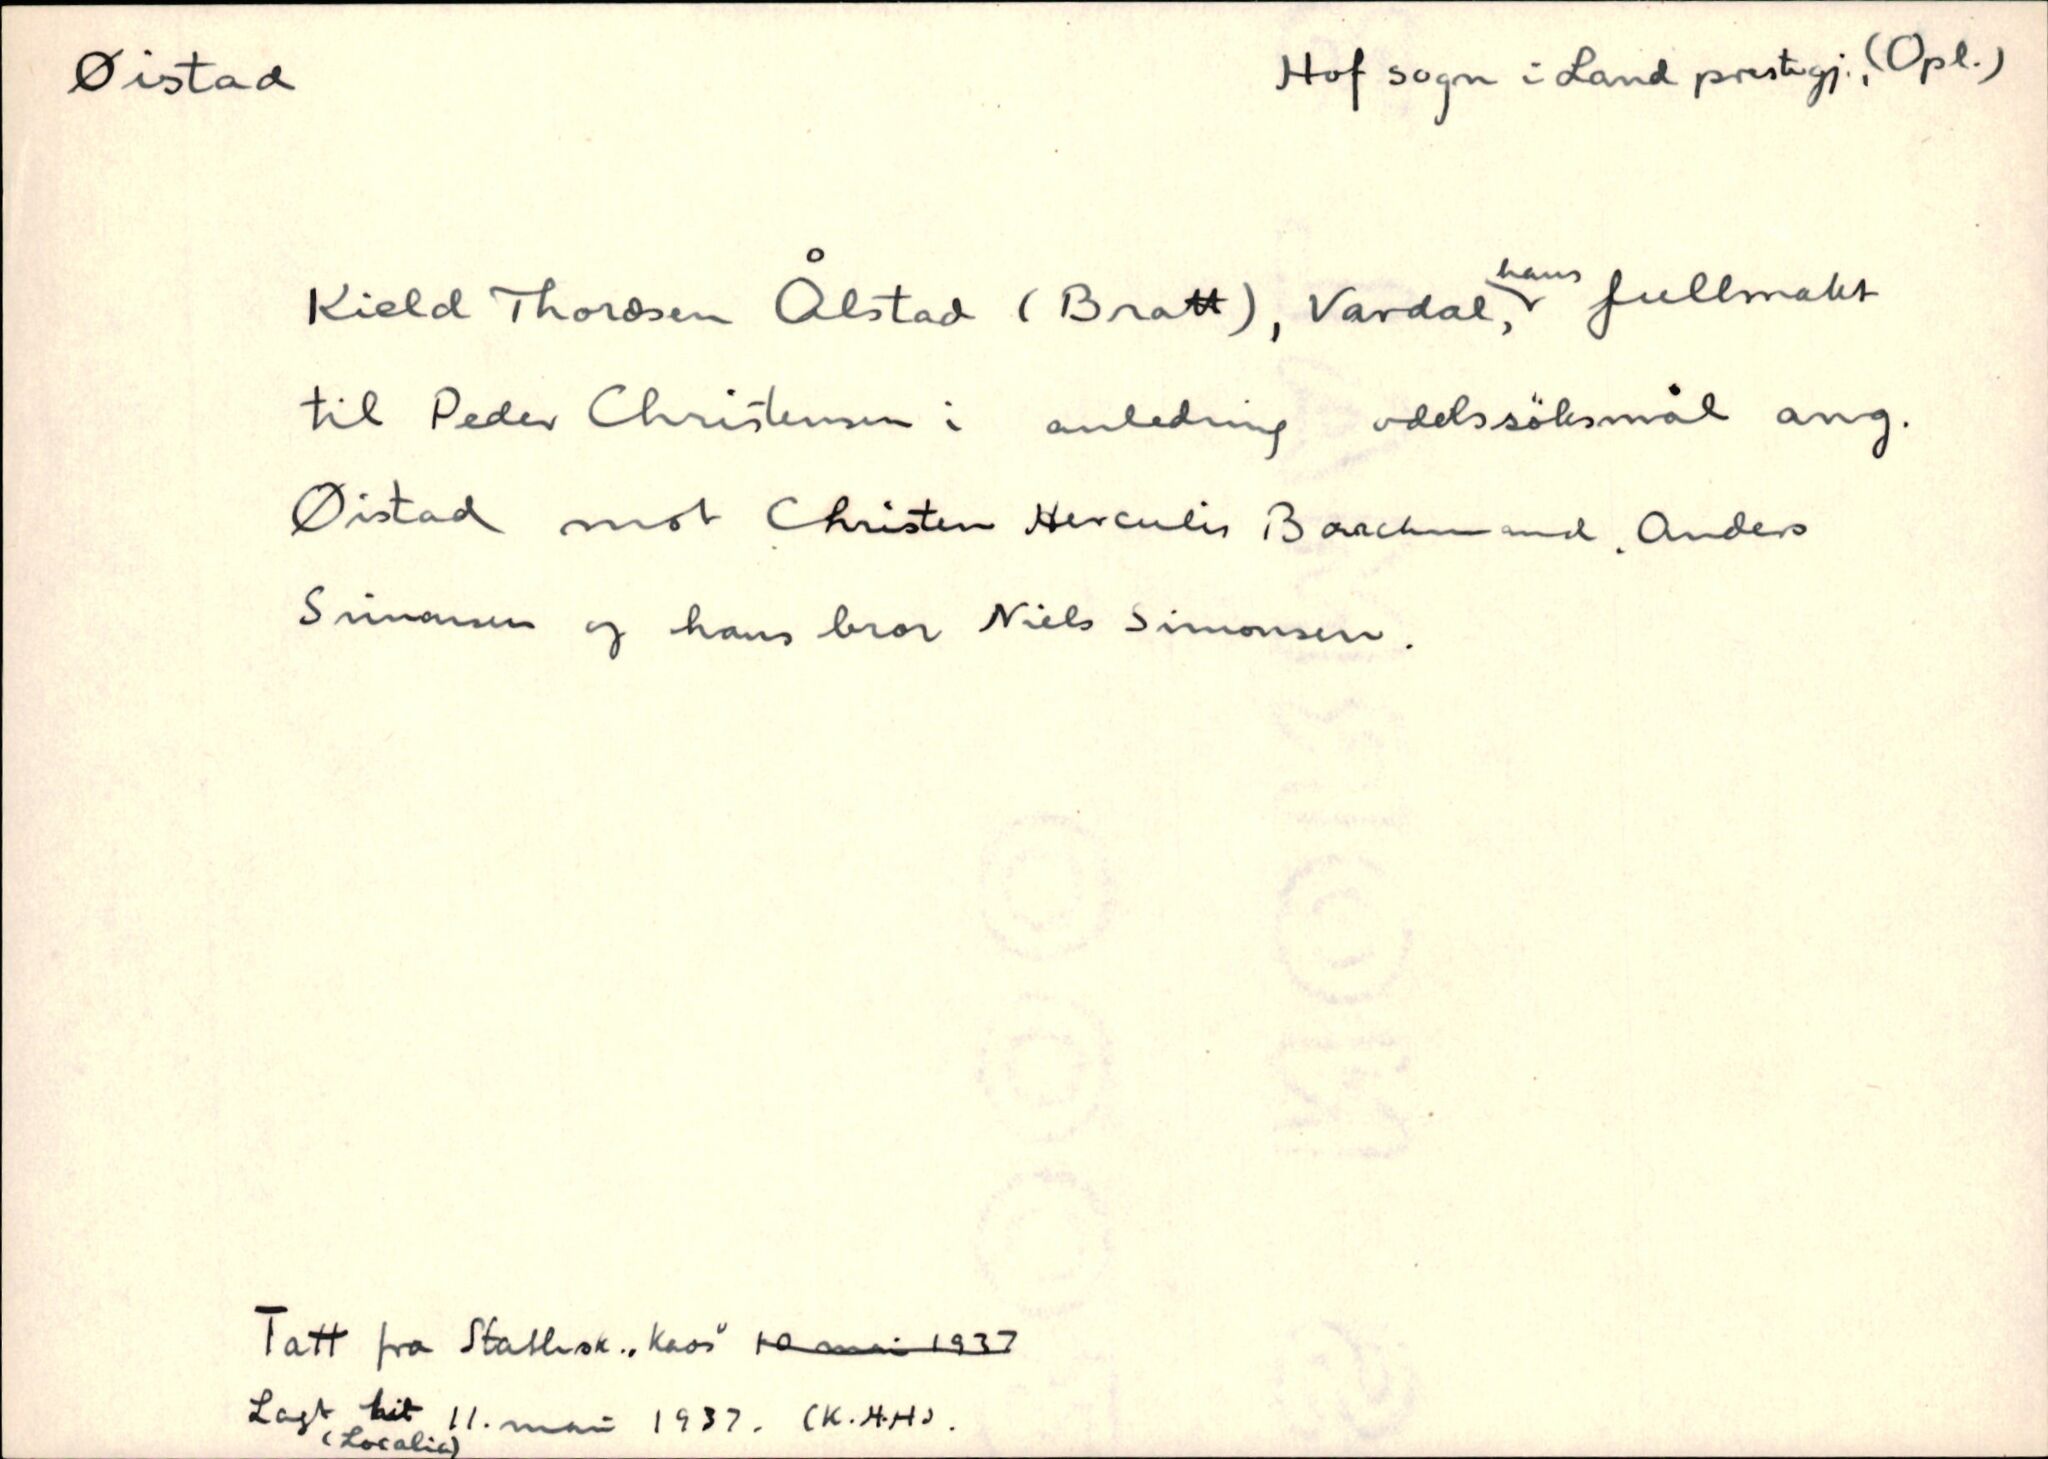 Øistad
Hof sogn i Land prestegj., (Opl.)
Kield Thordsen Ålstad (Bratt), Vardal, hans fullmakt
til Peder Christensen i anledning odelssöksmål ang.
Øistad mot Christen Herculis Barchmand, Anders
Simonsen og hans bror Niels Simonsen.
Tatt fra Stattlisk „Kaos" 10 mai 1937
Lagt hit 11. mai 1937. (K.H.H).
(Localia)